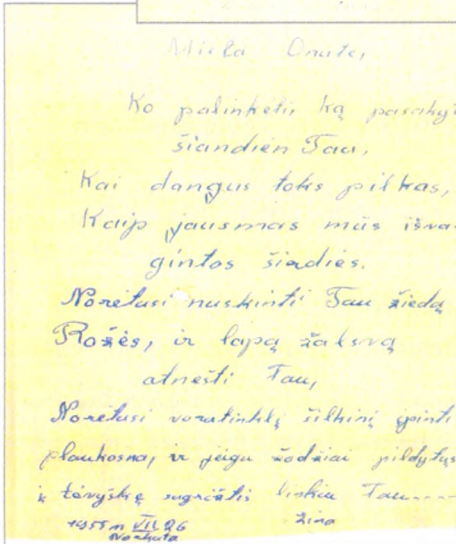 Miela Onute,
Ko palinkėti, ką pasakyt
šiandien Tau,
Kai dangus toks pilkas,
Kaip jausmas mūs išva-
gintos širdies.
Norėtusi nuskinti Tau žiedą
Rožės, ir lapą žalsvą
atnešti Tau,
Norėtusi voratinklį šilkinį įpinti
plaukosna, ir jeigu žodžiai pildytųs
į tėvyškę sugrįžti linkiu Tau----
1955 m VII 26 Zina
Norkuta